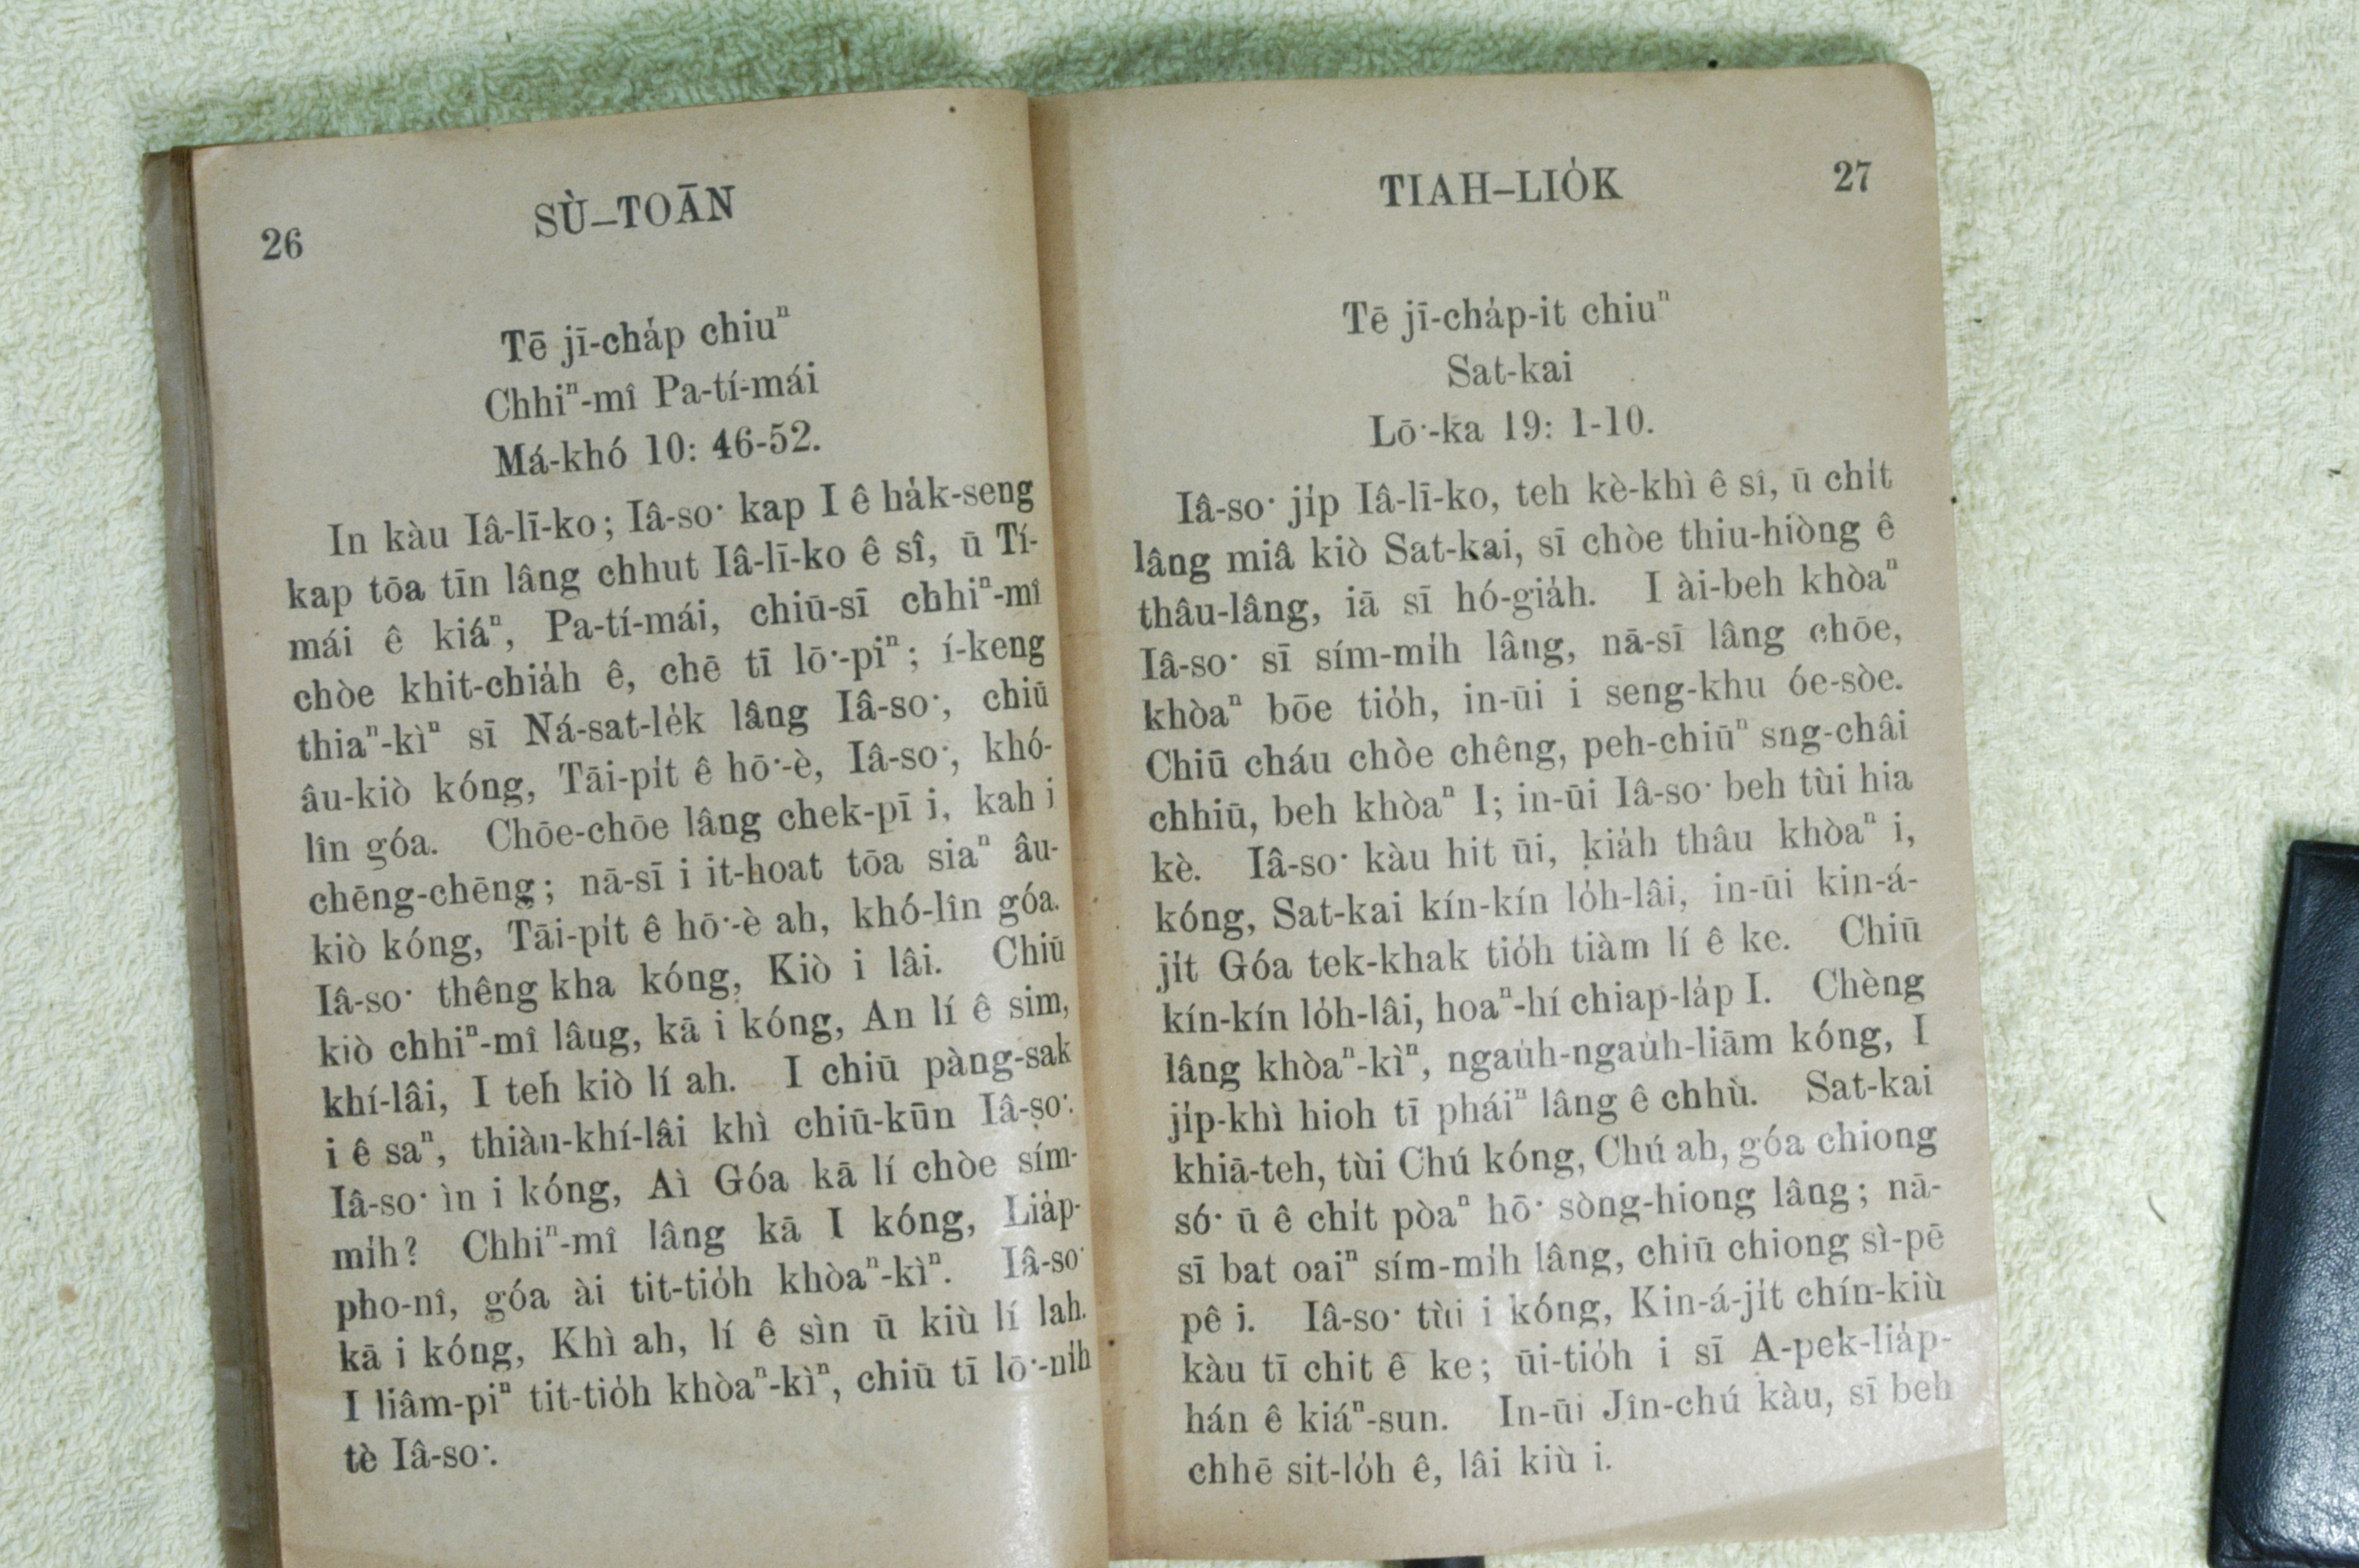 26
SÙ–TOĀN
Tē jī-cha̍p chiuⁿ
Chhiⁿ-mî Pa-tí-mái
Má-khó 10: 46-52.
In kàu Iâ-lī-ko; Iâ-so͘ kap I ê ha̍k-seng
kap tōa tīn lâng chhut Iâ-lī-ko ê sî, ū Tí-
mái ê kiáⁿ, Pa-tí-mái, chiū-sī chhiⁿ-mî
chòe khit-chia̍h ê, chē tī lō͘-piⁿ; í-keng
thiaⁿ-kìⁿ sī Ná-sat-le̍k lâng Iâ-so͘, chiū
âu-kiò kóng, Tāi-pi̍t ê hō͘-è, Iâ-so͘, khó-
lîn góa. Chōe-chōe lâng chek-pī i, kah i
chēng-chēng; nā-sī i it-hoat tōa siaⁿ âu-
kiò kóng, Tāi-pi̍t ê hō͘-è ah, khó-lîn góa.
Iâ-so͘ thêng kha kóng, Kiò i lâi. Chiū
kiò chhiⁿ-mî lâug, kā i kóng, An lí ê sim,
khí-lâi, I teh kiò lí ah. I chiū pàng-sak
i ê saⁿ, thiàu-khí-lâi khì chiū-kūn Iâ-so͘.
Iâ-so͘ ìn i kóng, Aì Góa kā lí chòe sím-
mi̍h? Chhiⁿ-mî lâng kā I kóng, Lia̍p-
pho-nî, góa ài tit-tio̍h khòaⁿ-kìⁿ. Iâ-so͘
kā i kóng, Khì ah, lí ê sìn ū kiù lí lah.
I liâm-piⁿ tit-tio̍h khòaⁿ-kìⁿ, chiū tī lō͘-ni̍h
tè Iâ-so͘.
TIAH–LIO̍K
27
Tē jī-cha̍p-it chiuⁿ
Sat-kai
Lō͘-ka 19: 1-10.
Iâ-so͘ ji̍p Iâ-lī-ko, teh kè-khì ê sî, ū chi̍t
lâng miâ kiò Sat-kai, sī chòe thiu-hiòng ê
thâu-lâng, iā sī hó-gia̍h. I ài-beh khòaⁿ
Iâ-so͘ sī sím-mi̍h lâng, nā-sī lâng chōe,
khòaⁿ bōe tio̍h, in-ūi i seng-khu óe-sòe.
Chiū cháu chòe chêng, peh-chiūⁿ sng-châi
chhiū, beh khòaⁿ I; in-ūi Iâ-so͘ beh tùi hia
kè. Iâ-so͘ kàu hit ūi, kia̍h thâu khòaⁿ i,
kóng, Sat-kai kín-kín lo̍h-lâi, in-ūi kin-á-
ji̍t Góa tek-khak tio̍h tiàm lí ê ke. Chiū
kín-kín lo̍h-lâi, hoaⁿ-hí chiap-la̍p I. Chèng
lâng khòaⁿ-kìⁿ, ngau̍h-ngau̍h-liām kóng, I
ji̍p-khì hioh tī pháiⁿ lâng ê chhù. Sat-kai
khiā-teh, tùi Chú kóng, Chú ah, góa chiong
só͘ ū ê chi̍t pòaⁿ hō͘ sòng-hiong lâng; nā-
sī bat oaiⁿ sím-mi̍h lâng, chiū chiong sì-pē
pê i. Iâ-so͘ tùi i kóng, Kin-á-ji̍t chín-kiù
kàu tī chit ê ke; ūi-tio̍h i sī A-pek-lia̍p-
hán ê kiáⁿ-sun. In-ūi Jîn-chú kàu, sī beh
chhē sit-lo̍h ê, lâi kiù i.